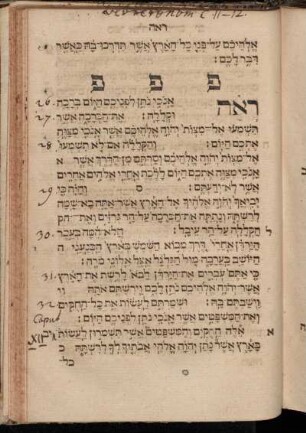 Deuteronom c 11-12
ראה
אלהיכם על־פני כל־הארץ אשר תדרכו־בה כאשר
דבר לכם׃
פ פ פ
26. ראה אנכי נתן לפניכם היום ברכה
27. וקללה׃ את־הברכה אשר
תשמעו אל־מצות יהוה אלהיכם אשר אנכי מצוה
28. אתכם היום׃ והקללה אם־לא תשמעו
אל־מצות יהוה אלהיכם וסרתם מן־הדרך אשר
אנכי מצוה אתכם היום ללכת אחרי אלהים אחרים
29. אשר לא־ידעתם׃ ס והיה כי
יביאך יהוה אלהיך אל־הארץ אשר־אתה בא־שמה
לרשתה ונתתה את־הברכה על־הר גרזים ואת־
30. הקללה על־הר עיבל׃ הלא־המה בעבר ל
הירדן אחרי דרך מבוא השמש בארץ הכנעני
הישב בערבה מול הגלגל אצל אלוני מרה׃
31. כי אתם עברים את־הירדן לבא לרשת את־הארץ
אשר־יהוה אלהיכם נתן לכם וירשתם אתה
32. וישבתם־בה׃ ושמרתם לעשות את כל־החקים
ואת־המשפטים אשר אנכי נתן לפניכם היום׃
Caput XII אלה החקים והמשפטים אשר תשמרון לעשות א
בארץ אשר נתן יהוה אלהי אבתיך לך לרשתה
כל־